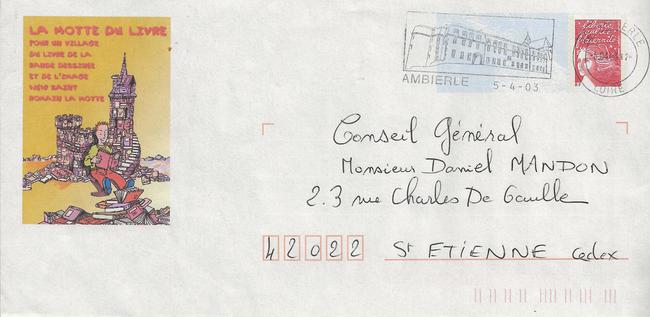 LA MOTTE DU LIVRE
POUR UN VILLAGE
DU LIVRE DE LA
BANDE DESSINEE
ET DE L'IMAGE
42640 SAINT
ROMAIN LA MOTTE
AMBIERLE
5-4-03
LOIRE
Conseil Général
Monsieur Daniel MANDON
2.3 rue Charles De Gaulle
42022 St ETIENNE cedex